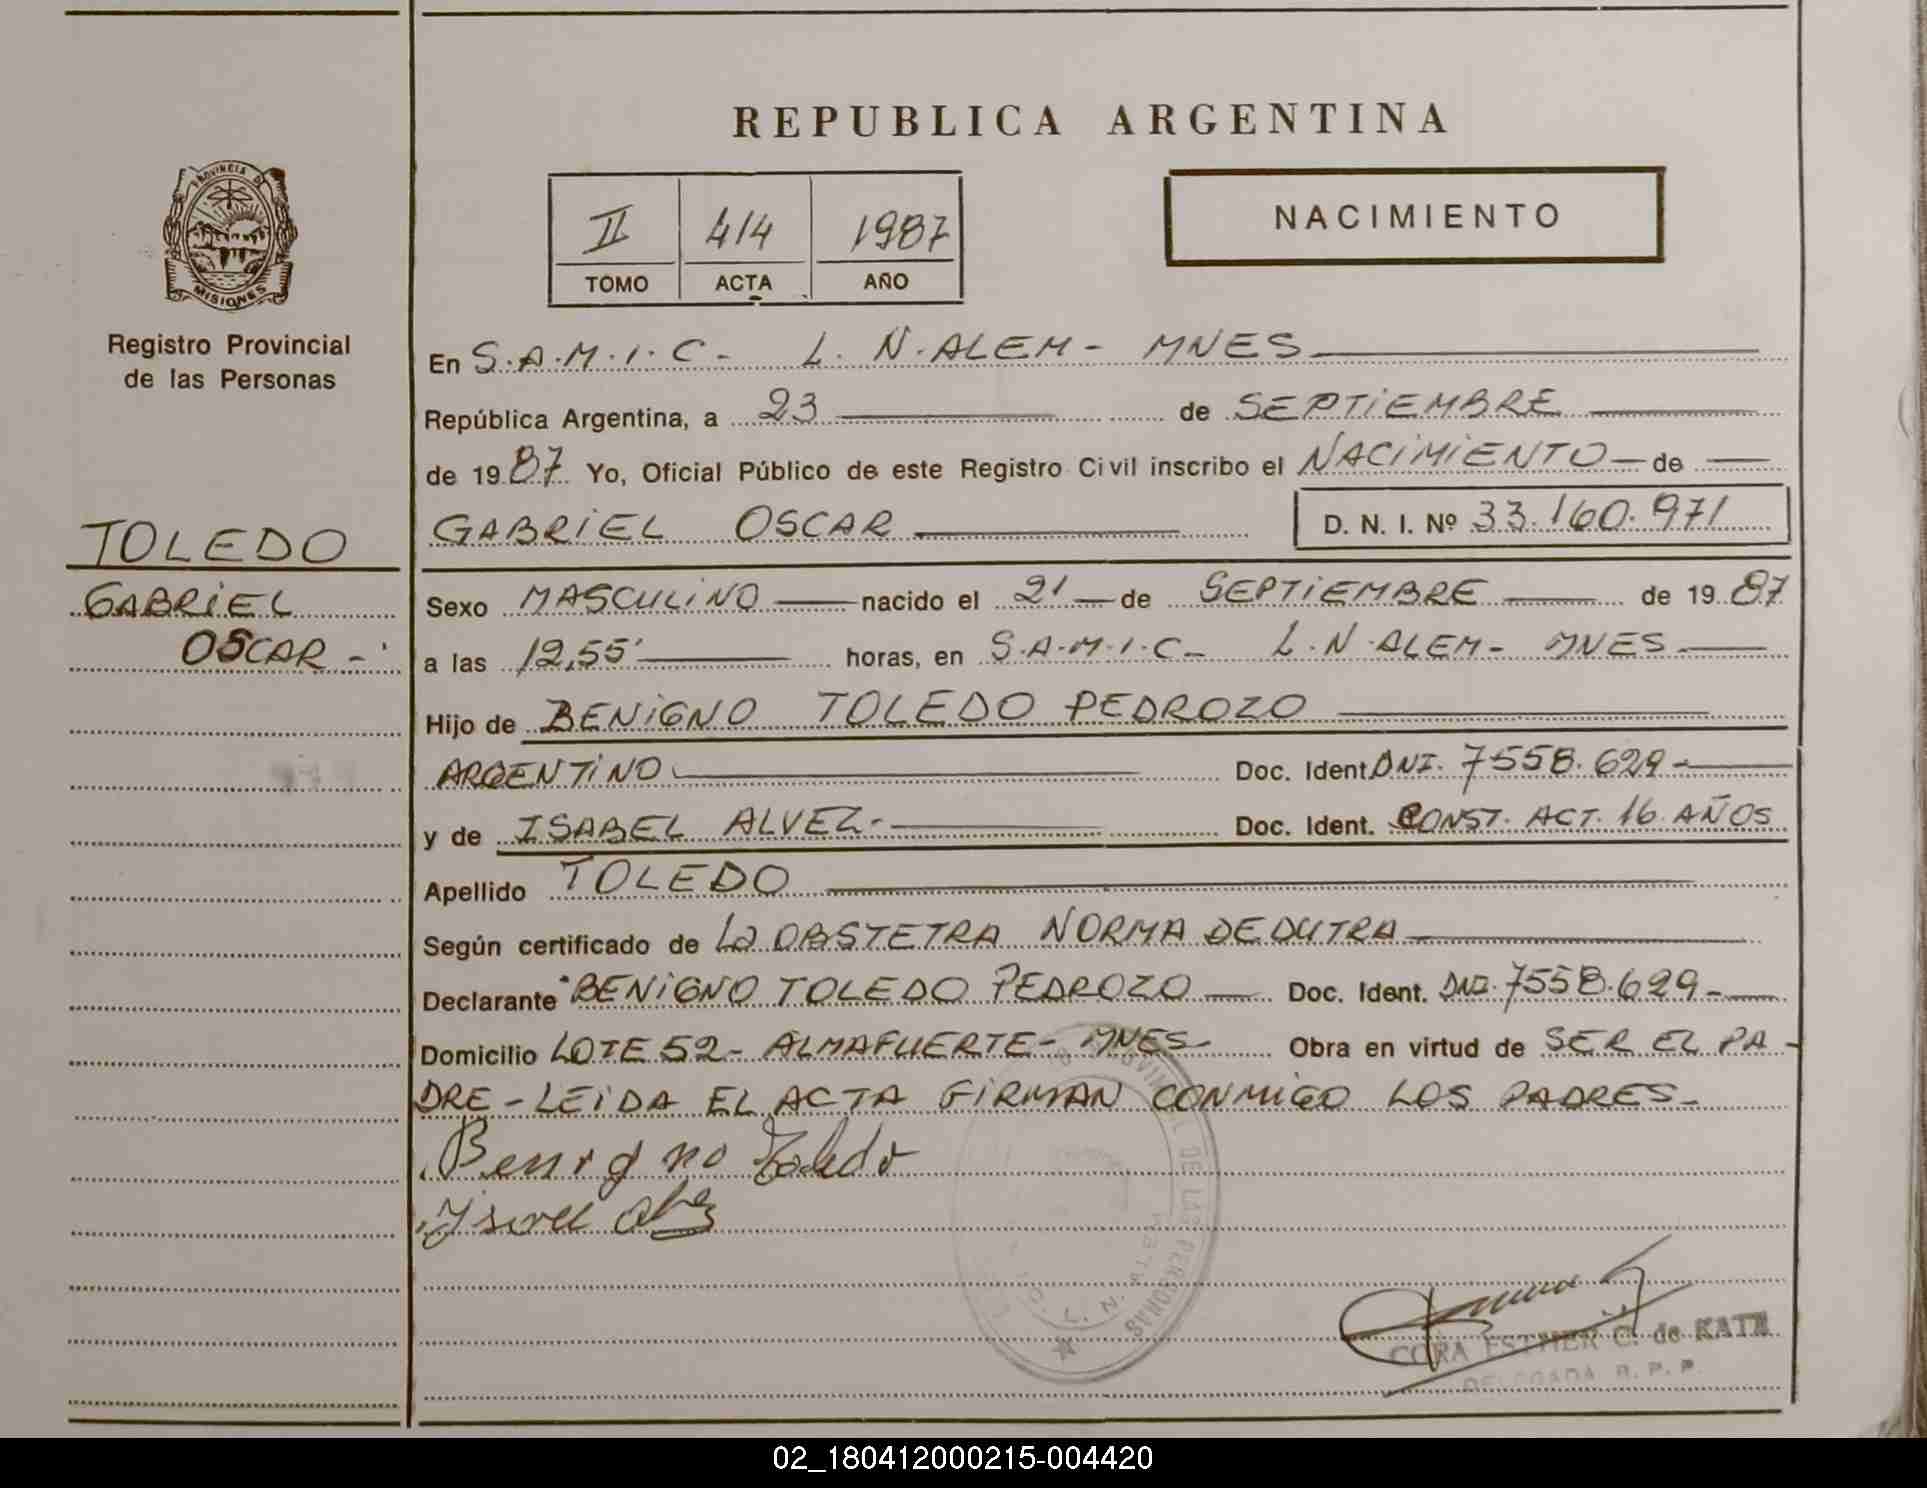 REPUBLICA ARGENTINA
PROVINCIA DE
MISIONES
Registro Provincial
de las Personas
II 414 1987
TOMO ACTA AÑO
NACIMIENTO
En S.A.M.I.C- L.N.ALEM- MNES
República Argentina, a 23 de SEPTIEMBRE
de 1987 Yo, Oficial Público de este Registro Civil inscribo el NACIMIENTO de
GABRIEL OSCAR D. N. I. Nº 33.160.971
TOLEDO
GABRIEL
OSCAR-
Sexo MASCULINO nacido el 21 de SEPTIEMBRE de 1987
a las 12,55' horas, en S.A.M.I.C- L.N.ALEM- MNES
Hijo de BENIGNO TOLEDO PEDROZO
ARGENTINO Doc. Ident. DNI. 7558.629-
y de ISABEL ALVEZ- Doc. Ident. CONST. ACT. 16 AÑOS
Apellido TOLEDO
Según certificado de La OBSTETRA NORMA DE DUTRA
Declarante BENIGNO TOLEDO PEDROZO Doc. Ident. DNI. 7558.629-
Domicilio LOTE 52- ALMAFUERTE- MNES- Obra en virtud de SER EL PA-
DRE-LEIDA EL ACTA FIRMAN CONMIGO LOS PADRES-
Benigno Toledo
DE LAS PERSONAS
CORA ESTHER C. de KATZ
DELEGADA R. P. P.
02_180412000215-004420